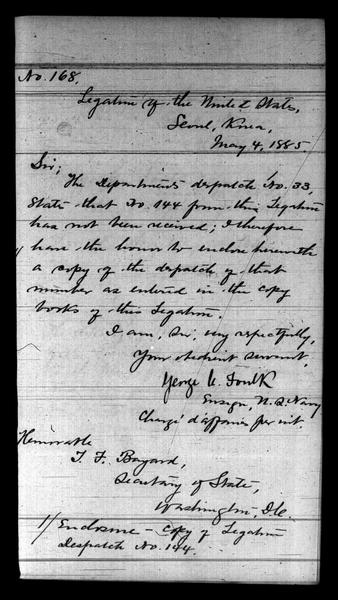 No. 168.
Legation of the United States,
Seoul, Korea,
May 4, 1885.
Sir;
The Department's despatch No. 33,
states that No. 144 from this Legation
has not been received; I therefore
1/ have the honor to enclose herewith
a copy of the despatch of that
number as entered in the copy
books of this Legation.
I am, Sir, very respectfully,
Your obedient servant,
George C. Foulk
Ensign, U.S. Navy
Chargé d'affaires per int.
Honorable
T. F. Bayard,
Secretary of State,
Washington, D.C.
1/ Enclosure - Copy of Legation
Despatch No. 144.